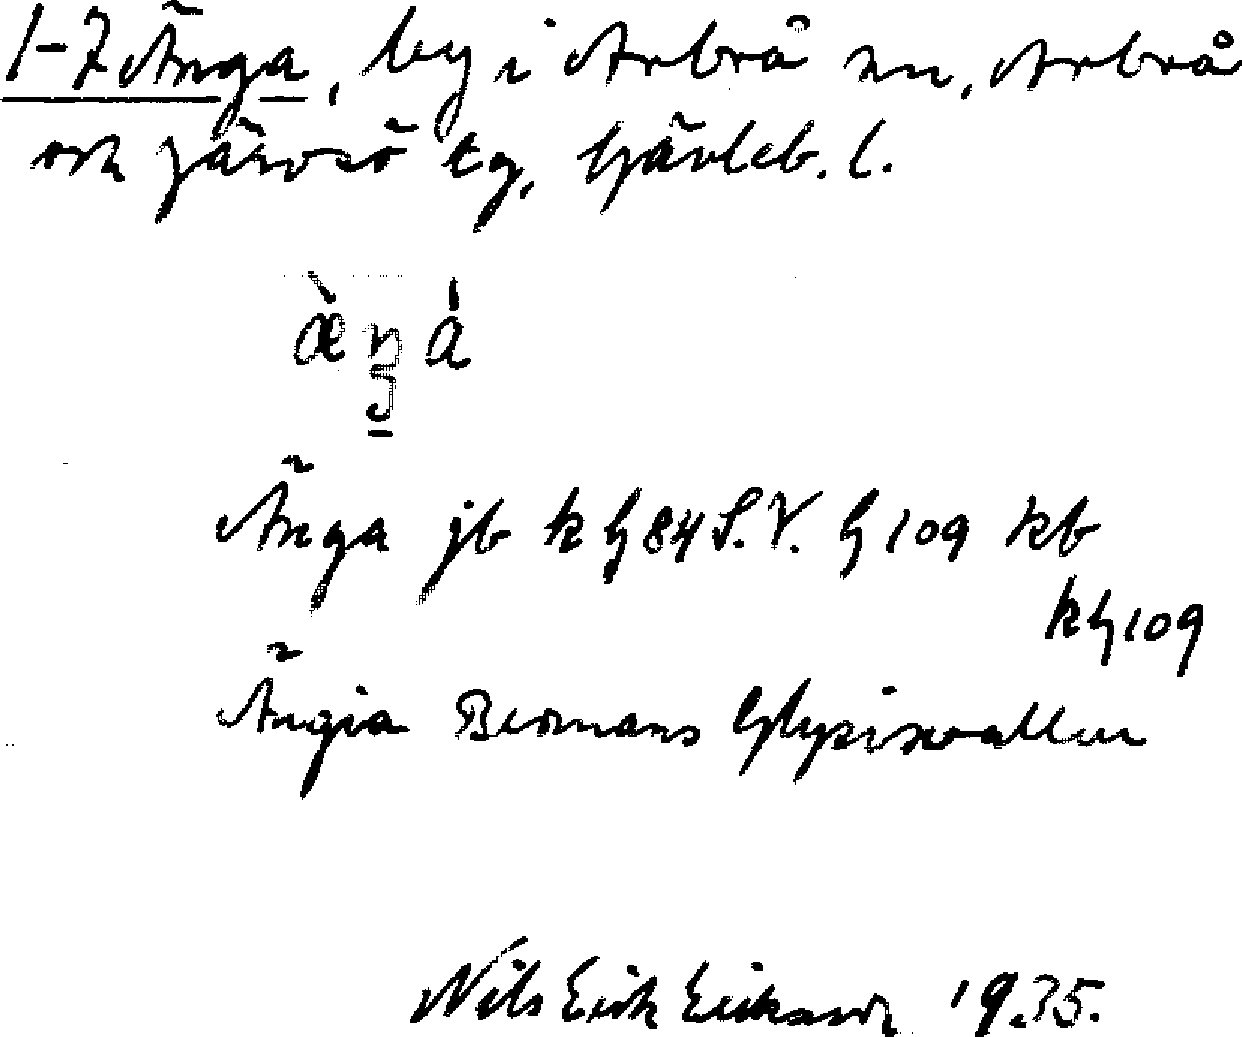 1-7 Änga, by i Arbrå sn, Arbrå
och Järvsö tg, Gävleb. l.
Änga jb k G 84 S.V. G 109 kb
k G 109
Ängia Bromans Glysisvallur
Nils Erik Eriksson 1935.